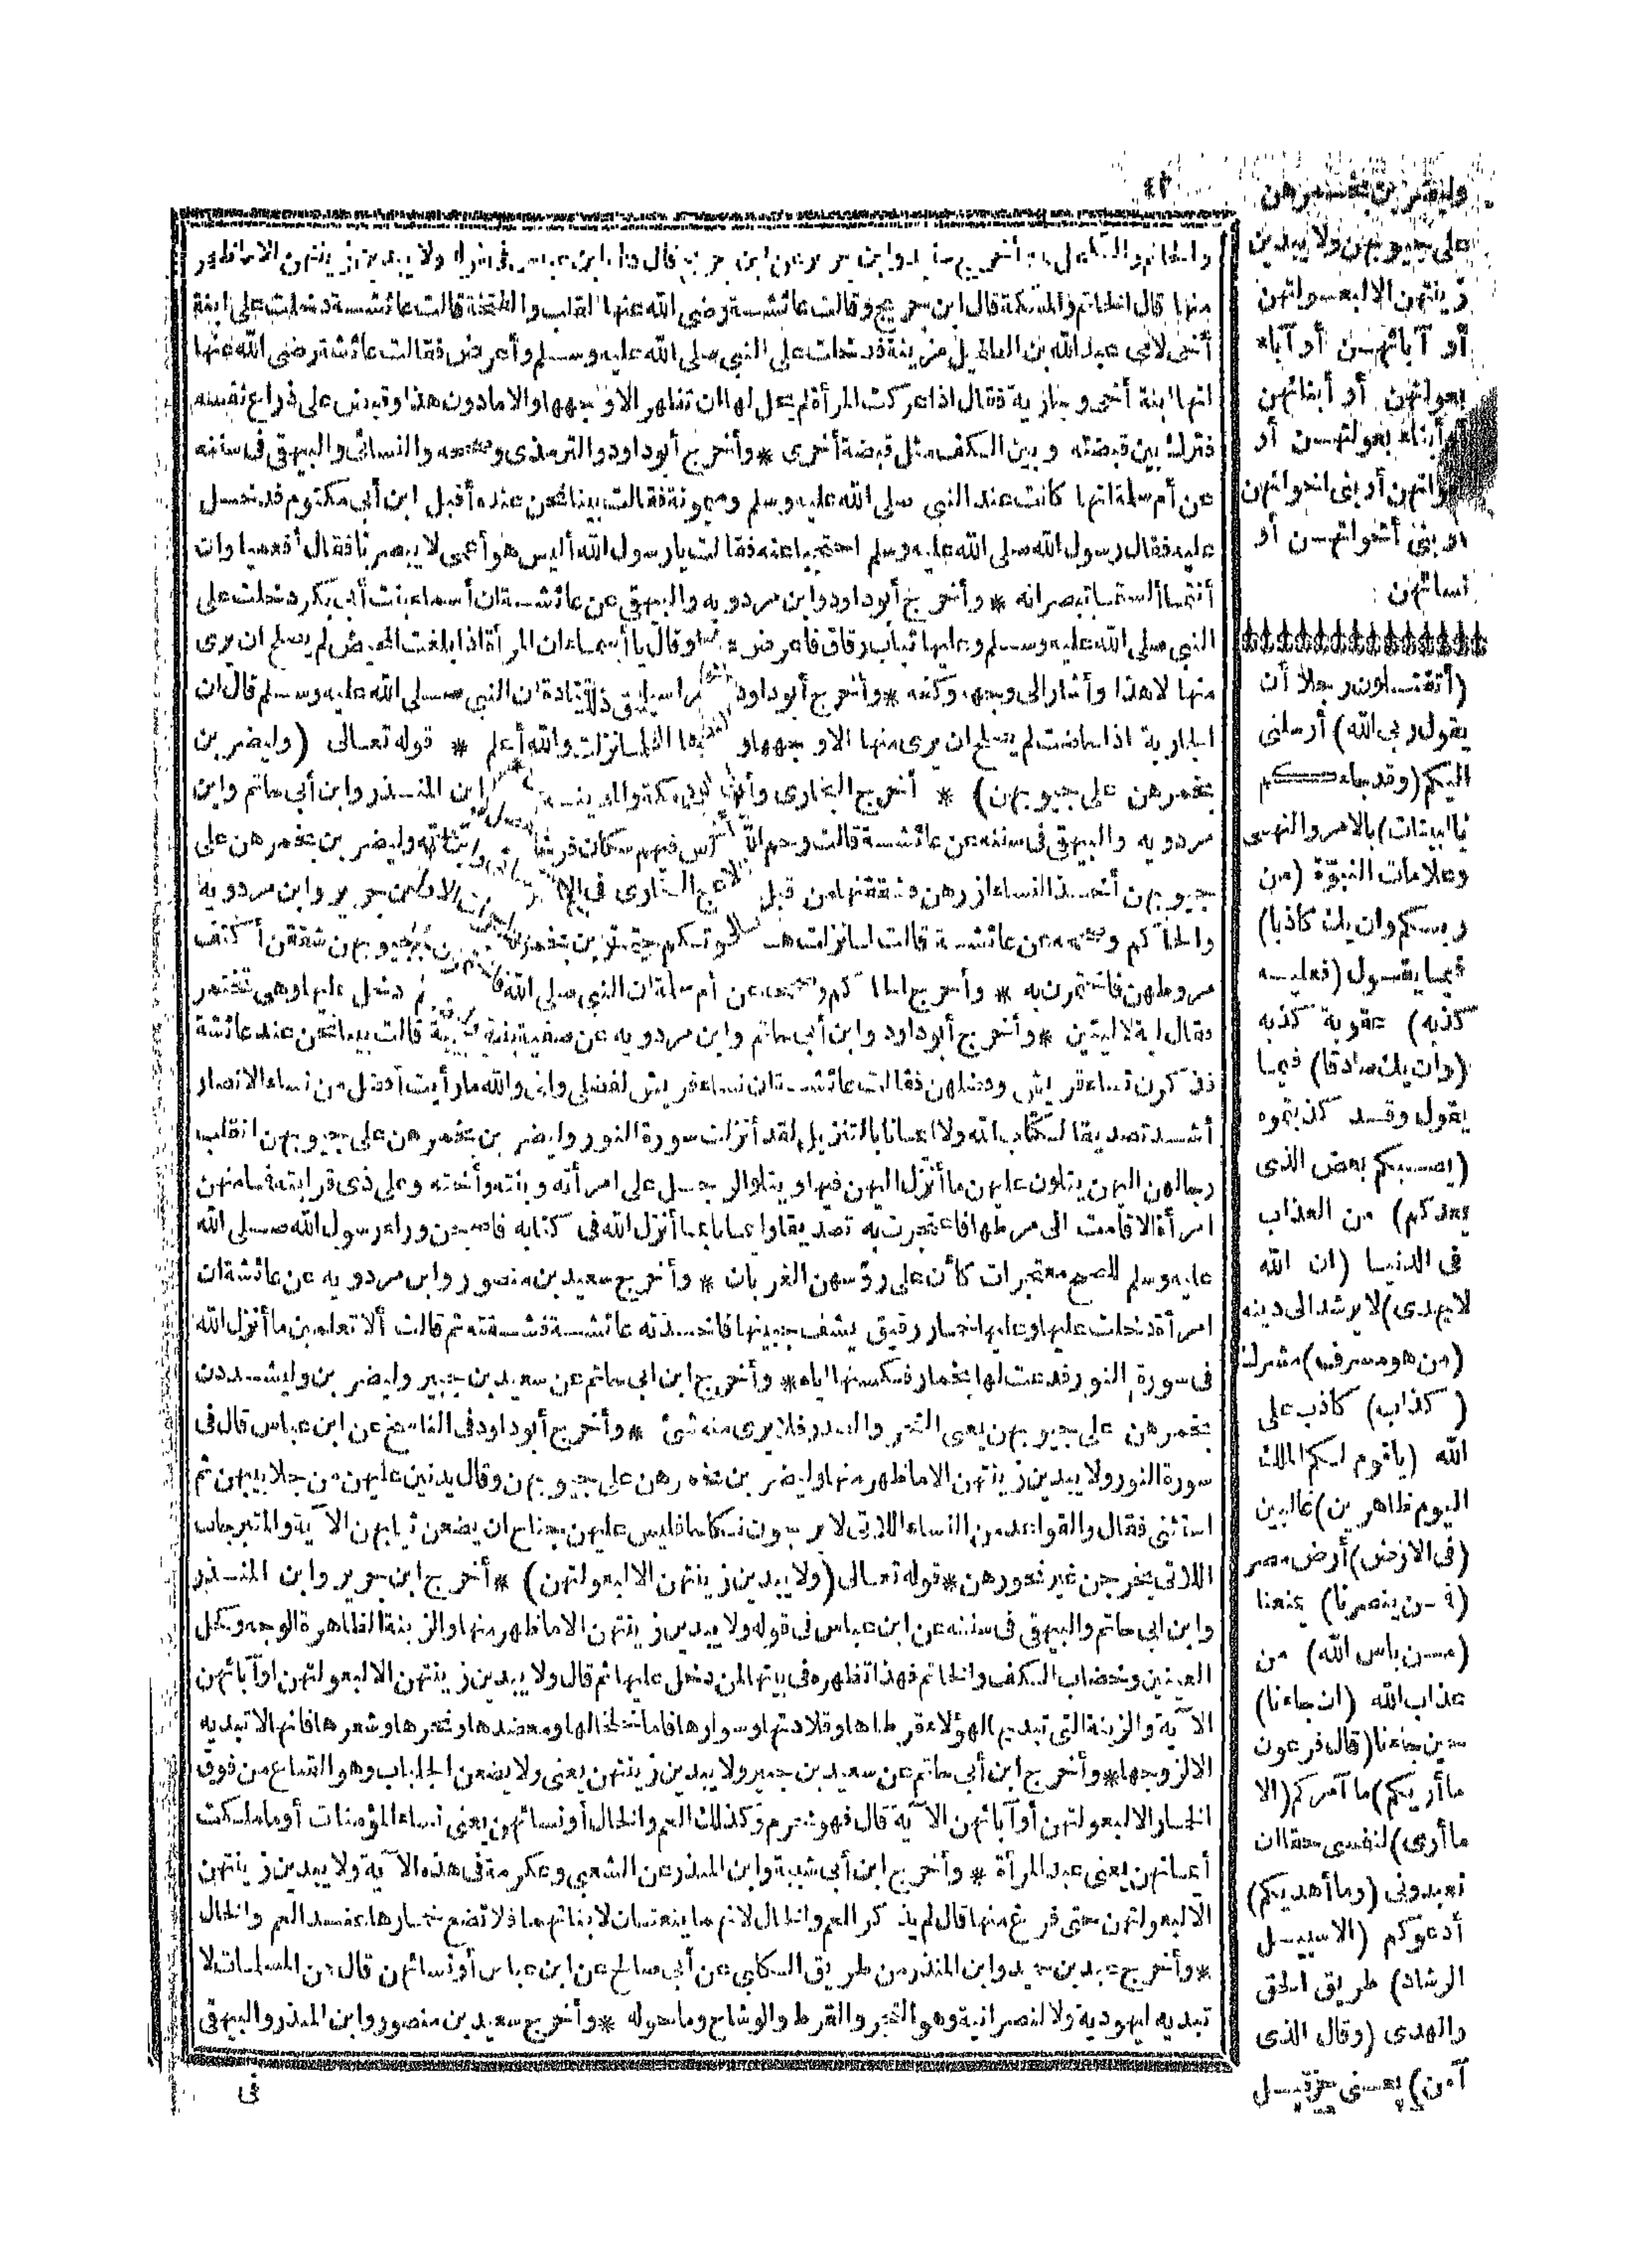 ٤٢
والخاتم والكحل * وأخرج سنيد وابن جرير عن ابن جريج قال قال ابن عباس فى قوله ولا يبدين زينتهن الا ما ظهر
منها قال الخاتم والمسكة قال ابن جريج وقالت عائشة رضى الله عنها القلب والفتخة قالت عائشة دخلت على ابنة
أخى لامى عبد الله بن الطفيل مزينة فدخلت على النبى صلى الله عليه وسلم وأعرض فقالت عائشة رضى الله عنها
انها ابنة أخى وجارية فقال اذا عركت المرأة لم يحل لها ان تظهر الا وجهها والا ما دون هذا وقبض على ذراع نفسه
فترك بين قبضته وبين الكف مثل قبضة أخرى * وأخرج أبو داود والترمذى وصححه والنسائى والبيهقى فى سننه
عن أم سلمة انها كانت عند النبى صلى الله عليه وسلم وميمونة فقالت بينا نحن عنده أقبل ابن أبى مكتوم فدخل
عليه فقال رسول الله صلى الله عليه وسلم احتجبا عنه فقالت يا رسول الله أليس هو أعمى لا يبصرنا فقال أفعمياوان
أنتما ألستما تبصرانه * وأخرج أبو داود وابن مردويه والبيهقى عن عائشة ان أسماء بنت أبى بكر دخلت على
النبى صلى الله عليه وسلم وعليها ثياب رقاق فاعرض عنها وقال يا أسماء ان المرأة اذا بلغت المحيض لم يصلح ان يرى
منها الا هذا وأشار الى وجهه وكفه * وأخرج أبو داود فى مراسيله عن قتادة ان النبى صلى الله عليه وسلم قال ان
الجارية اذا حاضت لم يصلح ان يرى منها الا وجهها و والله أعلم * قوله تعالى (وليضربن
بخمرهن على جيوبهن) * أخرج البخارى وابن المنذر وابن أبى حاتم وابن
مردويه والبيهقى فى سننه عن عائشة قالت رحم الله وليضربن بخمرهن على
جيوبهن أخذ النساء ازرهن فشققنها من قبل جرير وابن مردويه
والحاكم وصححه عن عائشة قالت لما نزلت وليضربن بخمرهن على جيوبهن شققن أكنف
مروطهن فاختمرن به * وأخرج الحاكم وصححه عن أم سلمة ان النبى صلى الله عليه وسلم دخل عليها وهى تختمر
فقال لية لا ليتين * وأخرج أبو داود وابن أبى حاتم وابن مردويه عن صفية بنت شيبة قالت بينا نحن عند عائشة
فذكرن نساء قريش وفضلهن فقالت عائشة ان نساء قريش لفضلى وانى والله ما رأيت أفضل من نساء الانصار
أشد تصديقا لكتاب الله ولا ايمانا بالتنزيل لقد أنزلت سورة النور وليضربن بخمرهن على جيوبهن انقلب
رجالهن اليهن يتلون عليهن ما أنزل اليهن فيها ويتلو الرجل على امرأته وبنته وأخته وعلى ذى قرابته فما منهن
امرأة الا قامت الى مرطها فاعتجرت به تصديقا وايمانا بما أنزل الله فى كتابه فاصبحن وراء رسول الله صلى الله
عليه وسلم للصبح معتجرات كأن على رؤسهن الغربان * وأخرج سعيد بن منصور وابن مردويه عن عائشة ان
امرأة دخلت عليها وعليها خمار رقيق يشف جبينها فاخذته عائشة فشقته ثم قالت ألا تعلمين ما أنزل الله
فى سورة النور فدعت لها بخمار فكستها اياه * وأخرج ابن ابى حاتم عن سعيد بن جبير وليضربن وليشددن
بخمرهن على جيوبهن يعنى النحر والصدر فلا يرى منه شئ * وأخرج أبو داود فى الناسخ عن ابن عباس قال فى
سورة النور ولا يبدين زينتهن الا ما ظهر منها وليضربن بخمرهن على جيوبهن وقال يدنين عليهن من جلابيبهن ثم
استثنى فقال والقواعد من النساء اللاتى لا يرجون نكاحا فليس عليهن جناح ان يضعن ثيابهن الآية والمتبرجات
اللاتى يخرجن غير نحورهن * قوله تعالى (ولا يبدين زينتهن الا لبعولتهن) * أخرج ابن جرير وابن المنذر
وابن ابى حاتم والبيهقى فى سننه عن ابن عباس فى قوله ولا يبدين زينتهن الا ما ظهر منها والزينة الظاهرة الوجه وكحل
العينين وخضاب الكف والخاتم فهذا تظهره فى بيتها لمن دخل عليها ثم قال ولا يبدين زينتهن الا لبعولتهن أو آبائهن
الآية والزينة التى تبديها لهؤلاء قرطاها وقلادتها وسوارها فاما خلخالها ومعضدها ونحرها وشعرها فانها لا تبديه
الا لزوجها * وأخرج ابن أبى حاتم عن سعيد بن جبير ولا يبدين زينتهن يعنى ولا يضعن الجلباب وهو القناع من فوق
الخمار الا لبعولتهن أو آبائهن الآية قال فهو محرم وكذلك العم والخال أو نسائهن يعنى نساء المؤمنات أو ما ملكت
أيمانهن يعنى عبد المرأة * وأخرج ابن أبى شيبة وابن المنذر عن الشعبى وعكرمة فى هذه الآية ولا يبدين زينتهن
الا لبعولتهن حتى فرغ منها قال لم يذكر العم والخال لانهما ينعتان لابنائهما فلا تضع خمارها عند العم والخال
* وأخرج عبد بن حميد وابن المنذر من طريق الكلبى عن أبى صالح عن ابن عباس أو نسائهن قال هن المسلمات لا
تبديه ليهودية ولا لنصرانية وهو النحر والقرط والوشاح وما حوله * وأخرج سعيد بن منصور وابن المنذر والبيهقى
فى
وليضربن بخمرهن
على جيوبهن ولا يبدين
زينتهن الا لبعولتهن
أو آبائهن أو آباء
بعولتهن أو أبنائهن
أو أبناء بعولتهن أو
اخوانهن أو بنى اخوانهن
أو بنى أخواتهن أو
نسائهن
(أتقتلون رجلا أن
يقول ربى الله) أرسلنى
اليكم (وقد جاءكم
بالبينات) بالامر والنهى
وعلامات النبوة (من
ربكم وان يك كاذبا)
فيما يقول (فعليه
كذبه) عقوبة كذبه
(وان يك صادقا) فيما
يقول وقد كذبتموه
(يصبكم بعض الذى
يعدكم) من العذاب
فى الدنيا (ان الله
لا يهدى) لا يرشد الى دينه
(من هو مسرف) مشرك
(كذاب) كاذب على
الله (يا قوم لكم الملك
اليوم ظاهرين) غالبين
(فى الارض) أرض مصر
(فمن ينصرنا) يمنعنا
(من باس الله) من
عذاب الله (ان جاءنا)
حين جاءنا (قال فرعون
ما أريكم) ما آمركم (الا
ما أرى) لنفسى حقا ان
تعبدونى (وما أهديكم)
أدعوكم (الا سبيل
الرشاد) طريق الحق
والهدى (وقال الذى
آمن) يعنى حزقيل